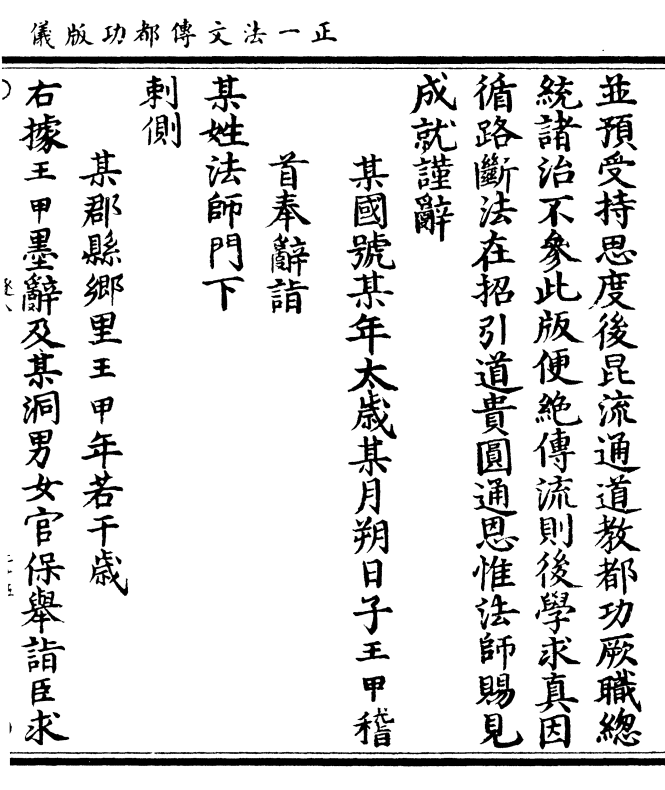 正一法文傳都功版儀
並預受持思度後昆流通道教都功厥職總
統諸治不參此版便絶傳流則後學求真因
循路斷法在招引道貴圓通恩惟法師賜見
成就謹辭
某國號某年太歲某月朔日子王甲稽
首奉辭詣
某姓法師門下
刺側
某郡縣鄉里王甲年若干歲
右據王甲墨辭及某洞男女官保舉詣臣求